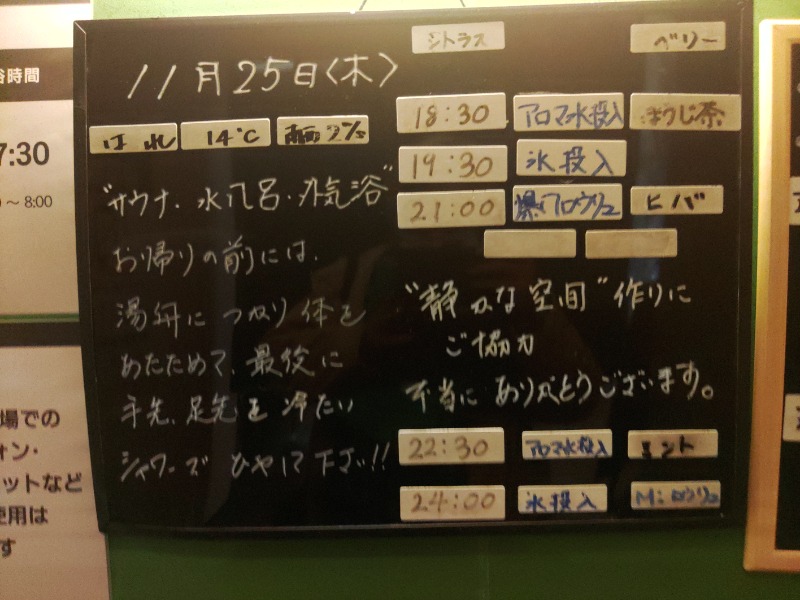 シトラス
ベリー
11月25日(木)
はれ 14℃
18:30 アロマ水投入 ほうじ茶
19:30 氷投入
21:00 爆ロウリュ ヒバ
"サウナ・水風呂・外気浴"
お帰りの前には、
湯舟につかり体を
あたためて、最後に
手先、足先を冷たい
シャワーで ひやして下さい!!
"静かな空間"作りに
ご協力
本当に ありがとうございます。
22:30 アロマ水投入 ミント
24:00 氷投入 Miロウリュ
浴時間
7:30
~ 8:00
場での
ォン・
ットなど
使用は
す